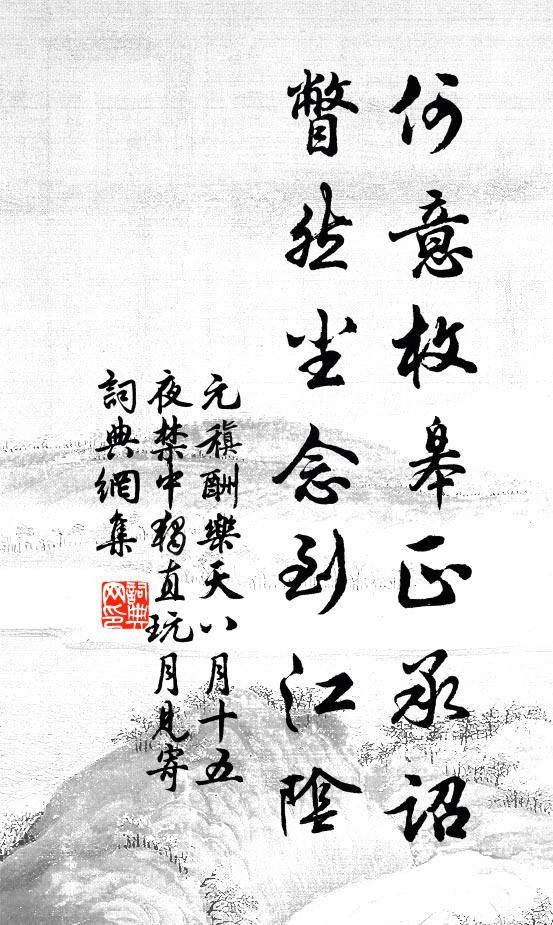 何意枚皋正承詔
瞥然坐念到江陰
元稹酬樂天八月十五
夜禁中獨直玩月見寄
詞典網集
詞典网印